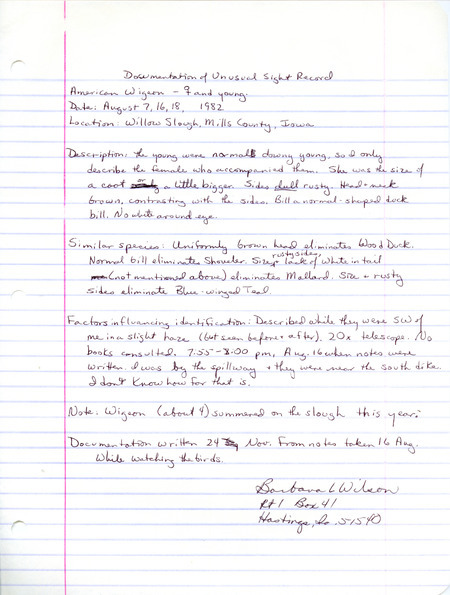 Documentation of Unusual Sight Record
American Wigeon - ♀ and young.
Date: August 7, 16, 18, 1982
Location: Willow Slough, Mills County, Iowa
Description: the young were normal downy young, so I only
describe the female who accompanied them. She was the size of
a coot or a little bigger. Sides dull rusty. Head + neck
brown, contrasting with the sides. Bill a normal-shaped duck
bill. No white around eye.
Similar species: Uniformly brown head eliminates Wood Duck.
Normal bill eliminates Shoveler. Size, rusty sides, + lack of white in tail
(not mentioned above) eliminates Mallard. Size + rusty
sides eliminate Blue-winged Teal.
Factors influencing identification: Described while they were SW of
me in a slight haze (but seen before + after). 20x telescope. No
books consulted. 7:55-8:00 pm, Aug. 16 when notes were
written. I was by the spillway + they were near the south dike.
I don't know how far that is.
Note: Wigeon (about 4) summered on the slough this year.
Documentation written 24 Nov. From notes taken 16 Aug.
While watching the birds.
Barbara L Wilson
Rt 1 Box 41
Hastings, Ia. 51540